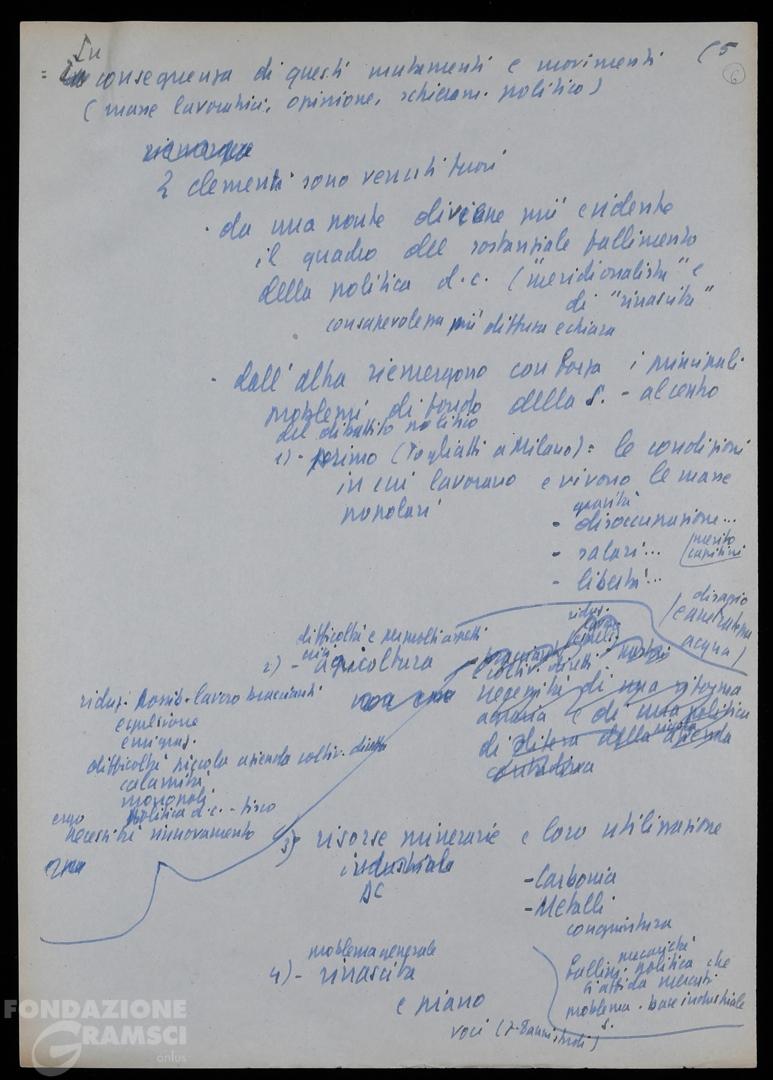 (5
6
In
= In conseguenza di questi mutamenti e movimenti
(masse lavoratrici, opinione, schieram. politico)
riemerge
2 elementi sono venuti fuori
· da una parte diviene più evidente
il quadro del sostanziale fallimento
della politica d.c. ("meridionalista" e
di "rinascita"
consapevolezza più diffusa e chiara
- dall'altra riemergono con forza i principali
problemi di fondo della S. - al centro
del dibattito politico
1) - primo (Togliatti a Milano) = le condizioni
in cui lavorano e vivono le masse
popolari
gravità
- disoccupazione...
- salari...
- libertà...
disagio
acqua)
difficoltà e molti aspetti
crisi
2) - agricoltura
coltiv. diretti
necessità di una riforma
agraria e di una politica
di difesa della piccola azienda
contadina
riduz. possib. lavoro braccianti
espulsione
emigraz.
difficoltà piccola azienda coltiv. diretta
calamità
monopoli
politica d.c. - fisco
ergo
necessità rinnovamento
3) risorse minerarie e loro utilizzazione
industriale
DC
- Carbonia
- Metalli
conquista
fallim. politica che
si affida
problema - base industriale
S.
problema generale
4) - rinascita
e piano
voci
FONDAZIONE
GRAMSCI
onlus